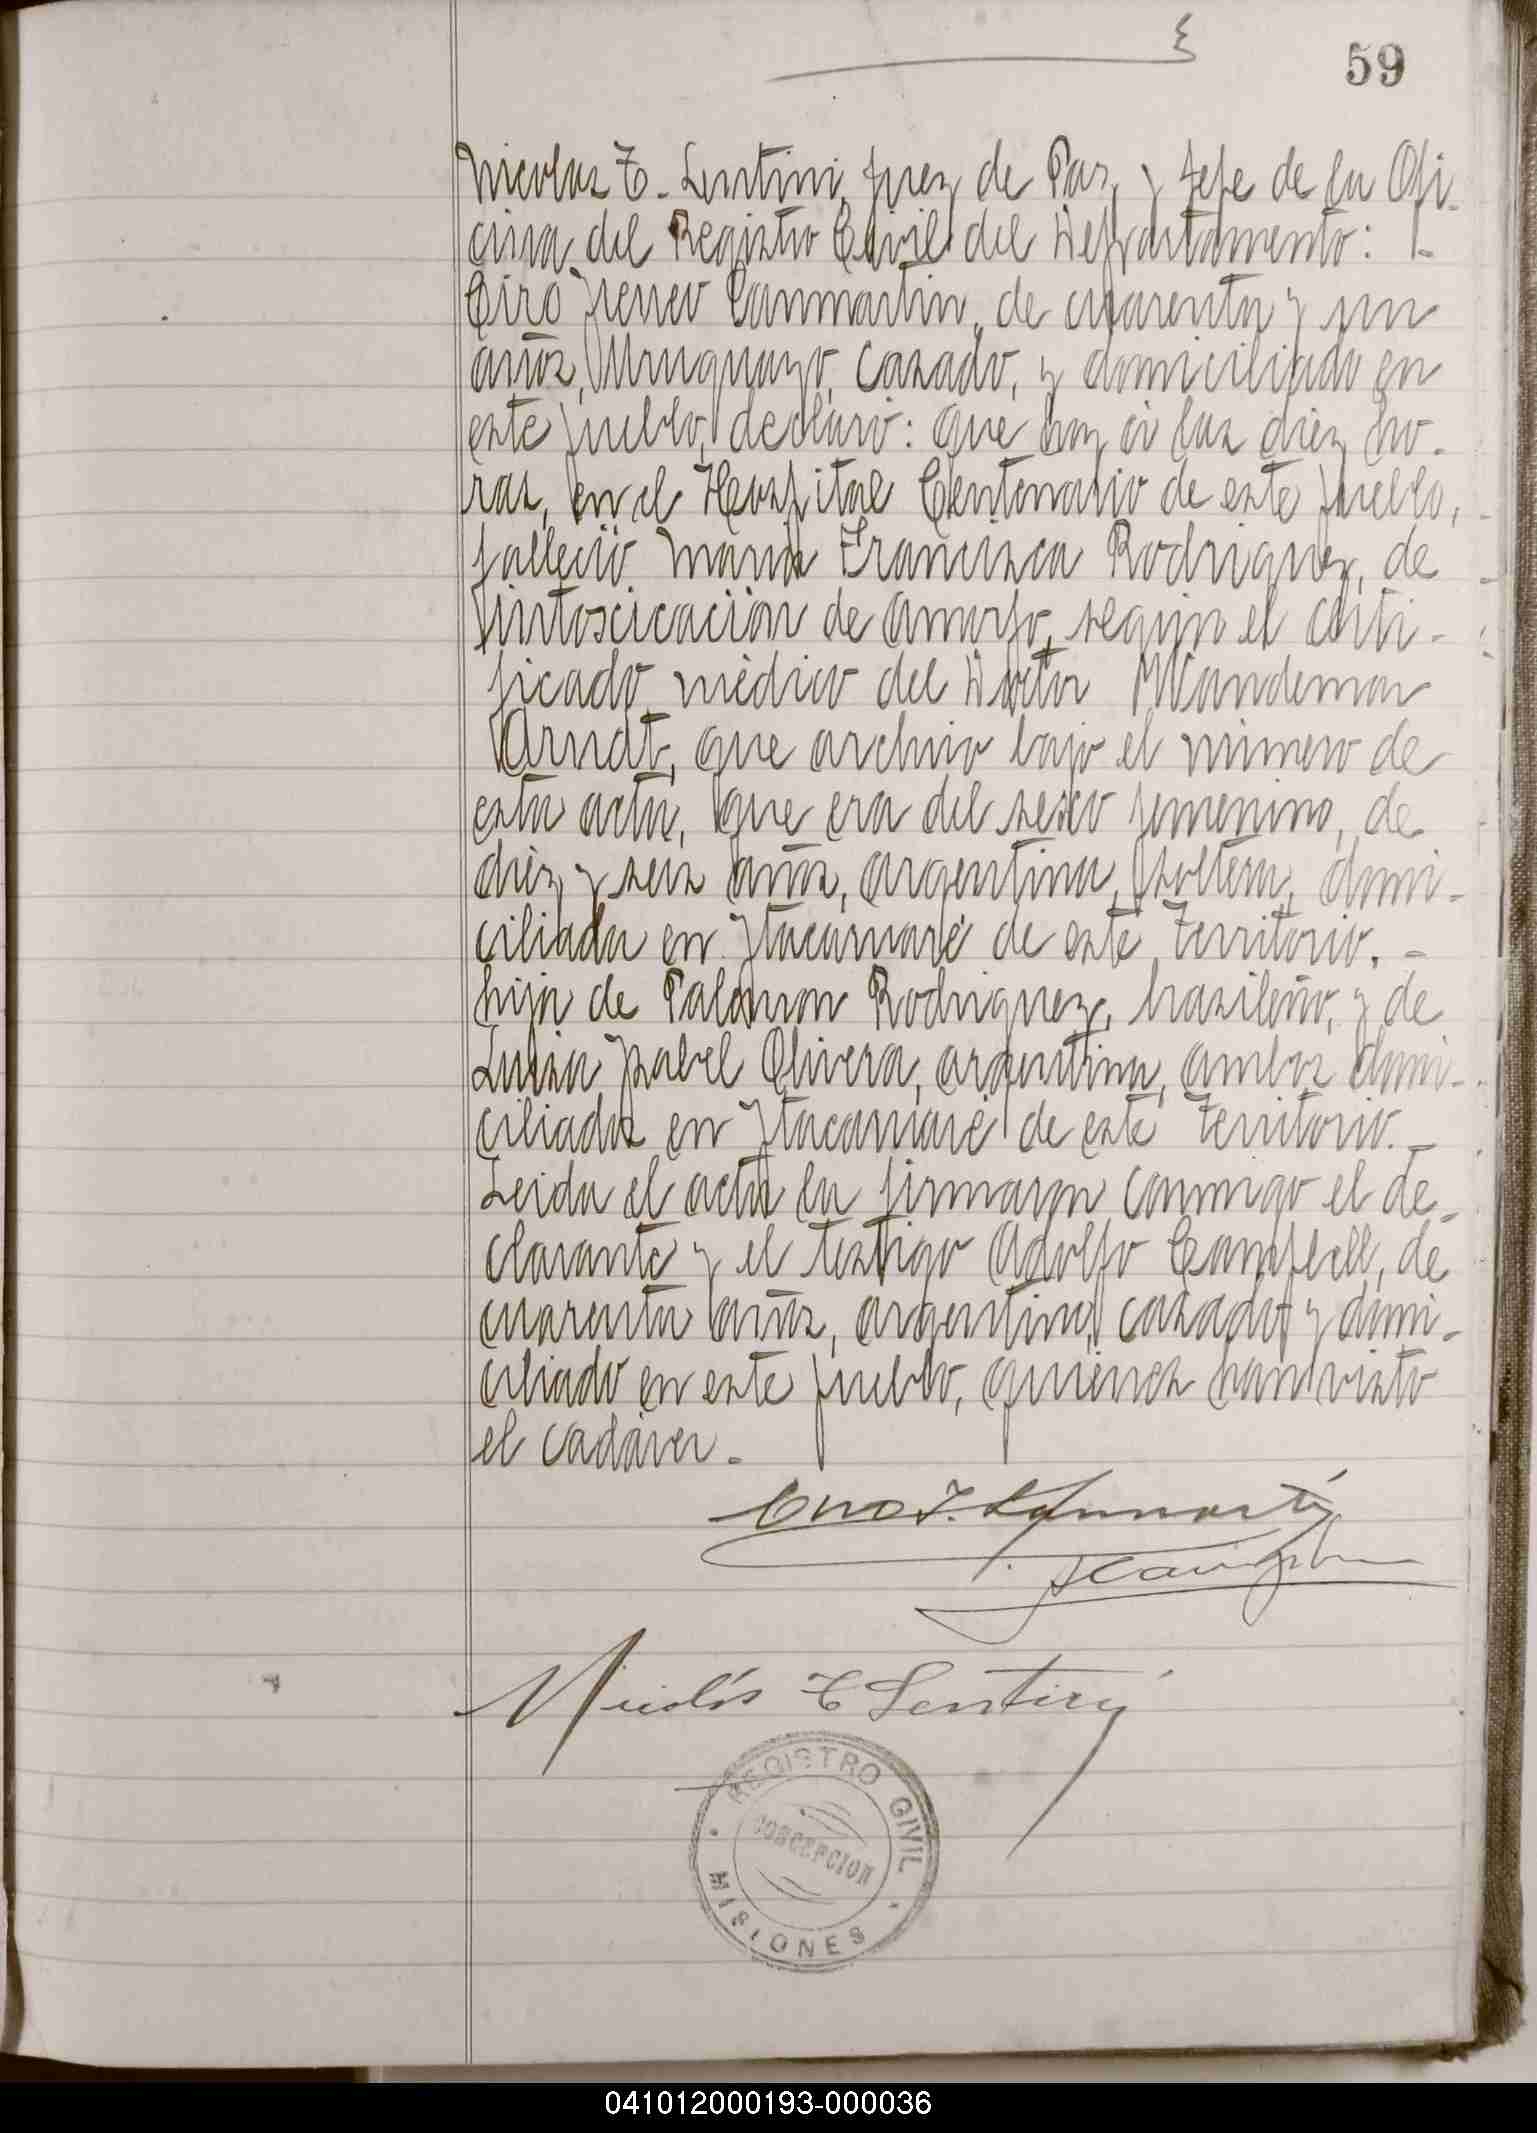 59
Nicolas T. Lentini, Juez de Paz, y Jefe de la Ofi-
cina del Registro Civil del Departamento: -
Ciro Ireneo Canmartin, de cuarenta y un
años, Uruguayo, casado, y domiciliado en
este pueblo, declaró: que hoy á las diez ho-
ras, en el Hospital Centenario de este pueblo,
falleció Maria Francisca Rodriguez, de
intoscicación de amorfo, según el certi-
ficado médico del Doctor Wandemar
Arndt, que archivo bajo el número de
esta acta, que era del sesco femenino, de
diez y seis años, argentina, soltera, domi-
ciliada en Ytacaruaré de este Territorio. -
hija de Palamon Rodriguez, brasileño, y de
Luisa Isabel Olivera, argentina, ambos domi-
ciliados en Ytacaruaré de este Territorio. -
Leida el acta la firmaron conmigo el de-
clarante y el testigo Adolfo Campbell, de
cuarenta años, argentino, casado y domi-
ciliado en este pueblo, quienes han visto
el cadáver. -
Nicolás T Lentini
REGISTRO CIVIL
CONCEPCION
MISIONES
041012000193-000036